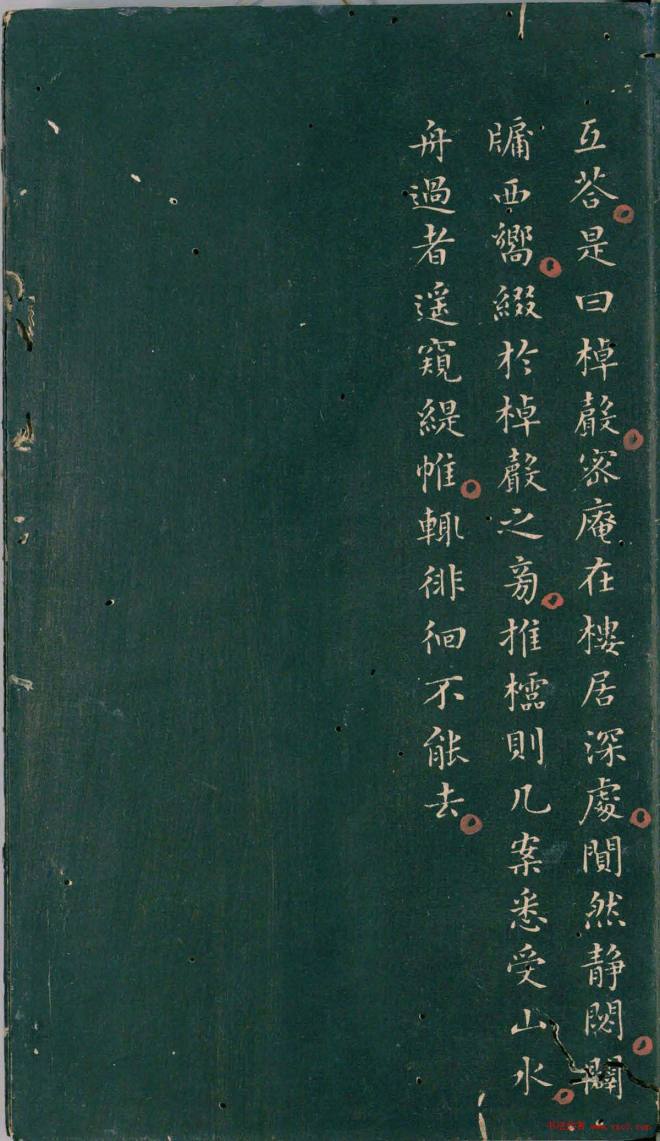 互荅是曰棹聲密庵在樓居深處闃然静閟闢
牖西嚮綴於棹聲之旁推櫺則几案悉受山水
舟過者遥窺緹帷輒徘徊不能去